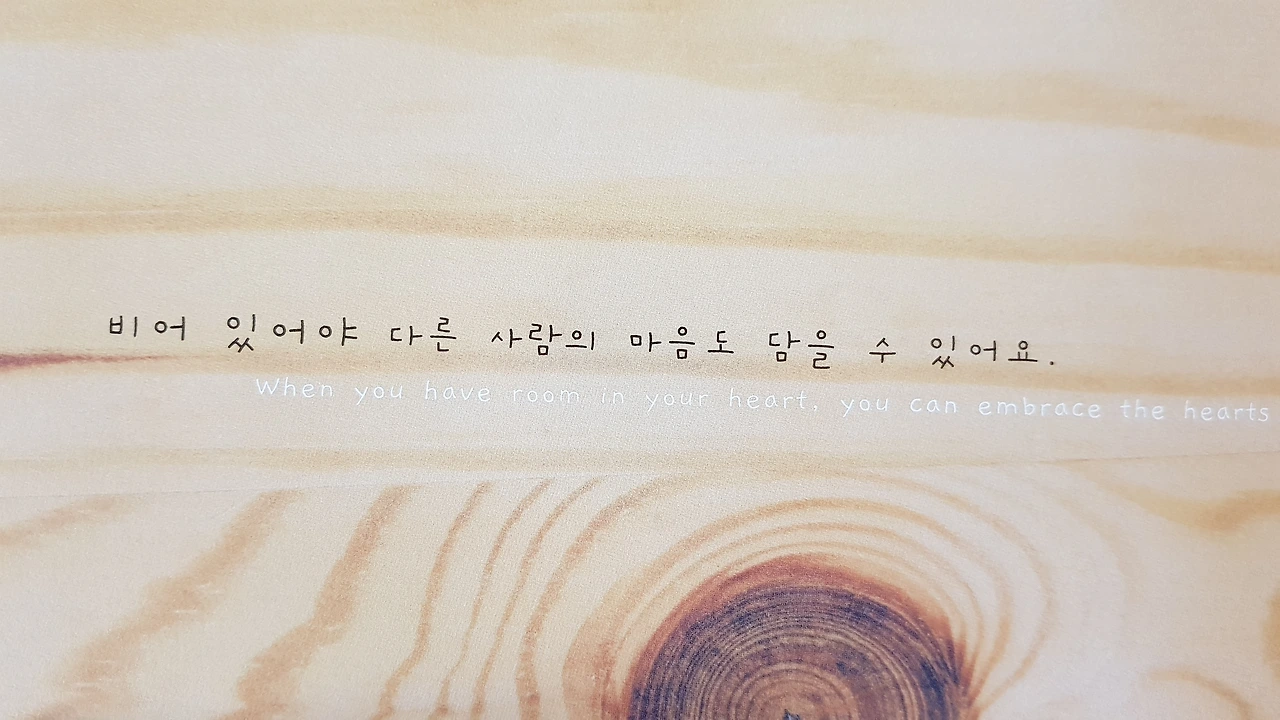 비어 있어야 다른 사람의 마음도 담을 수 있어요.
When you have room in your heart, you can embrace the hearts